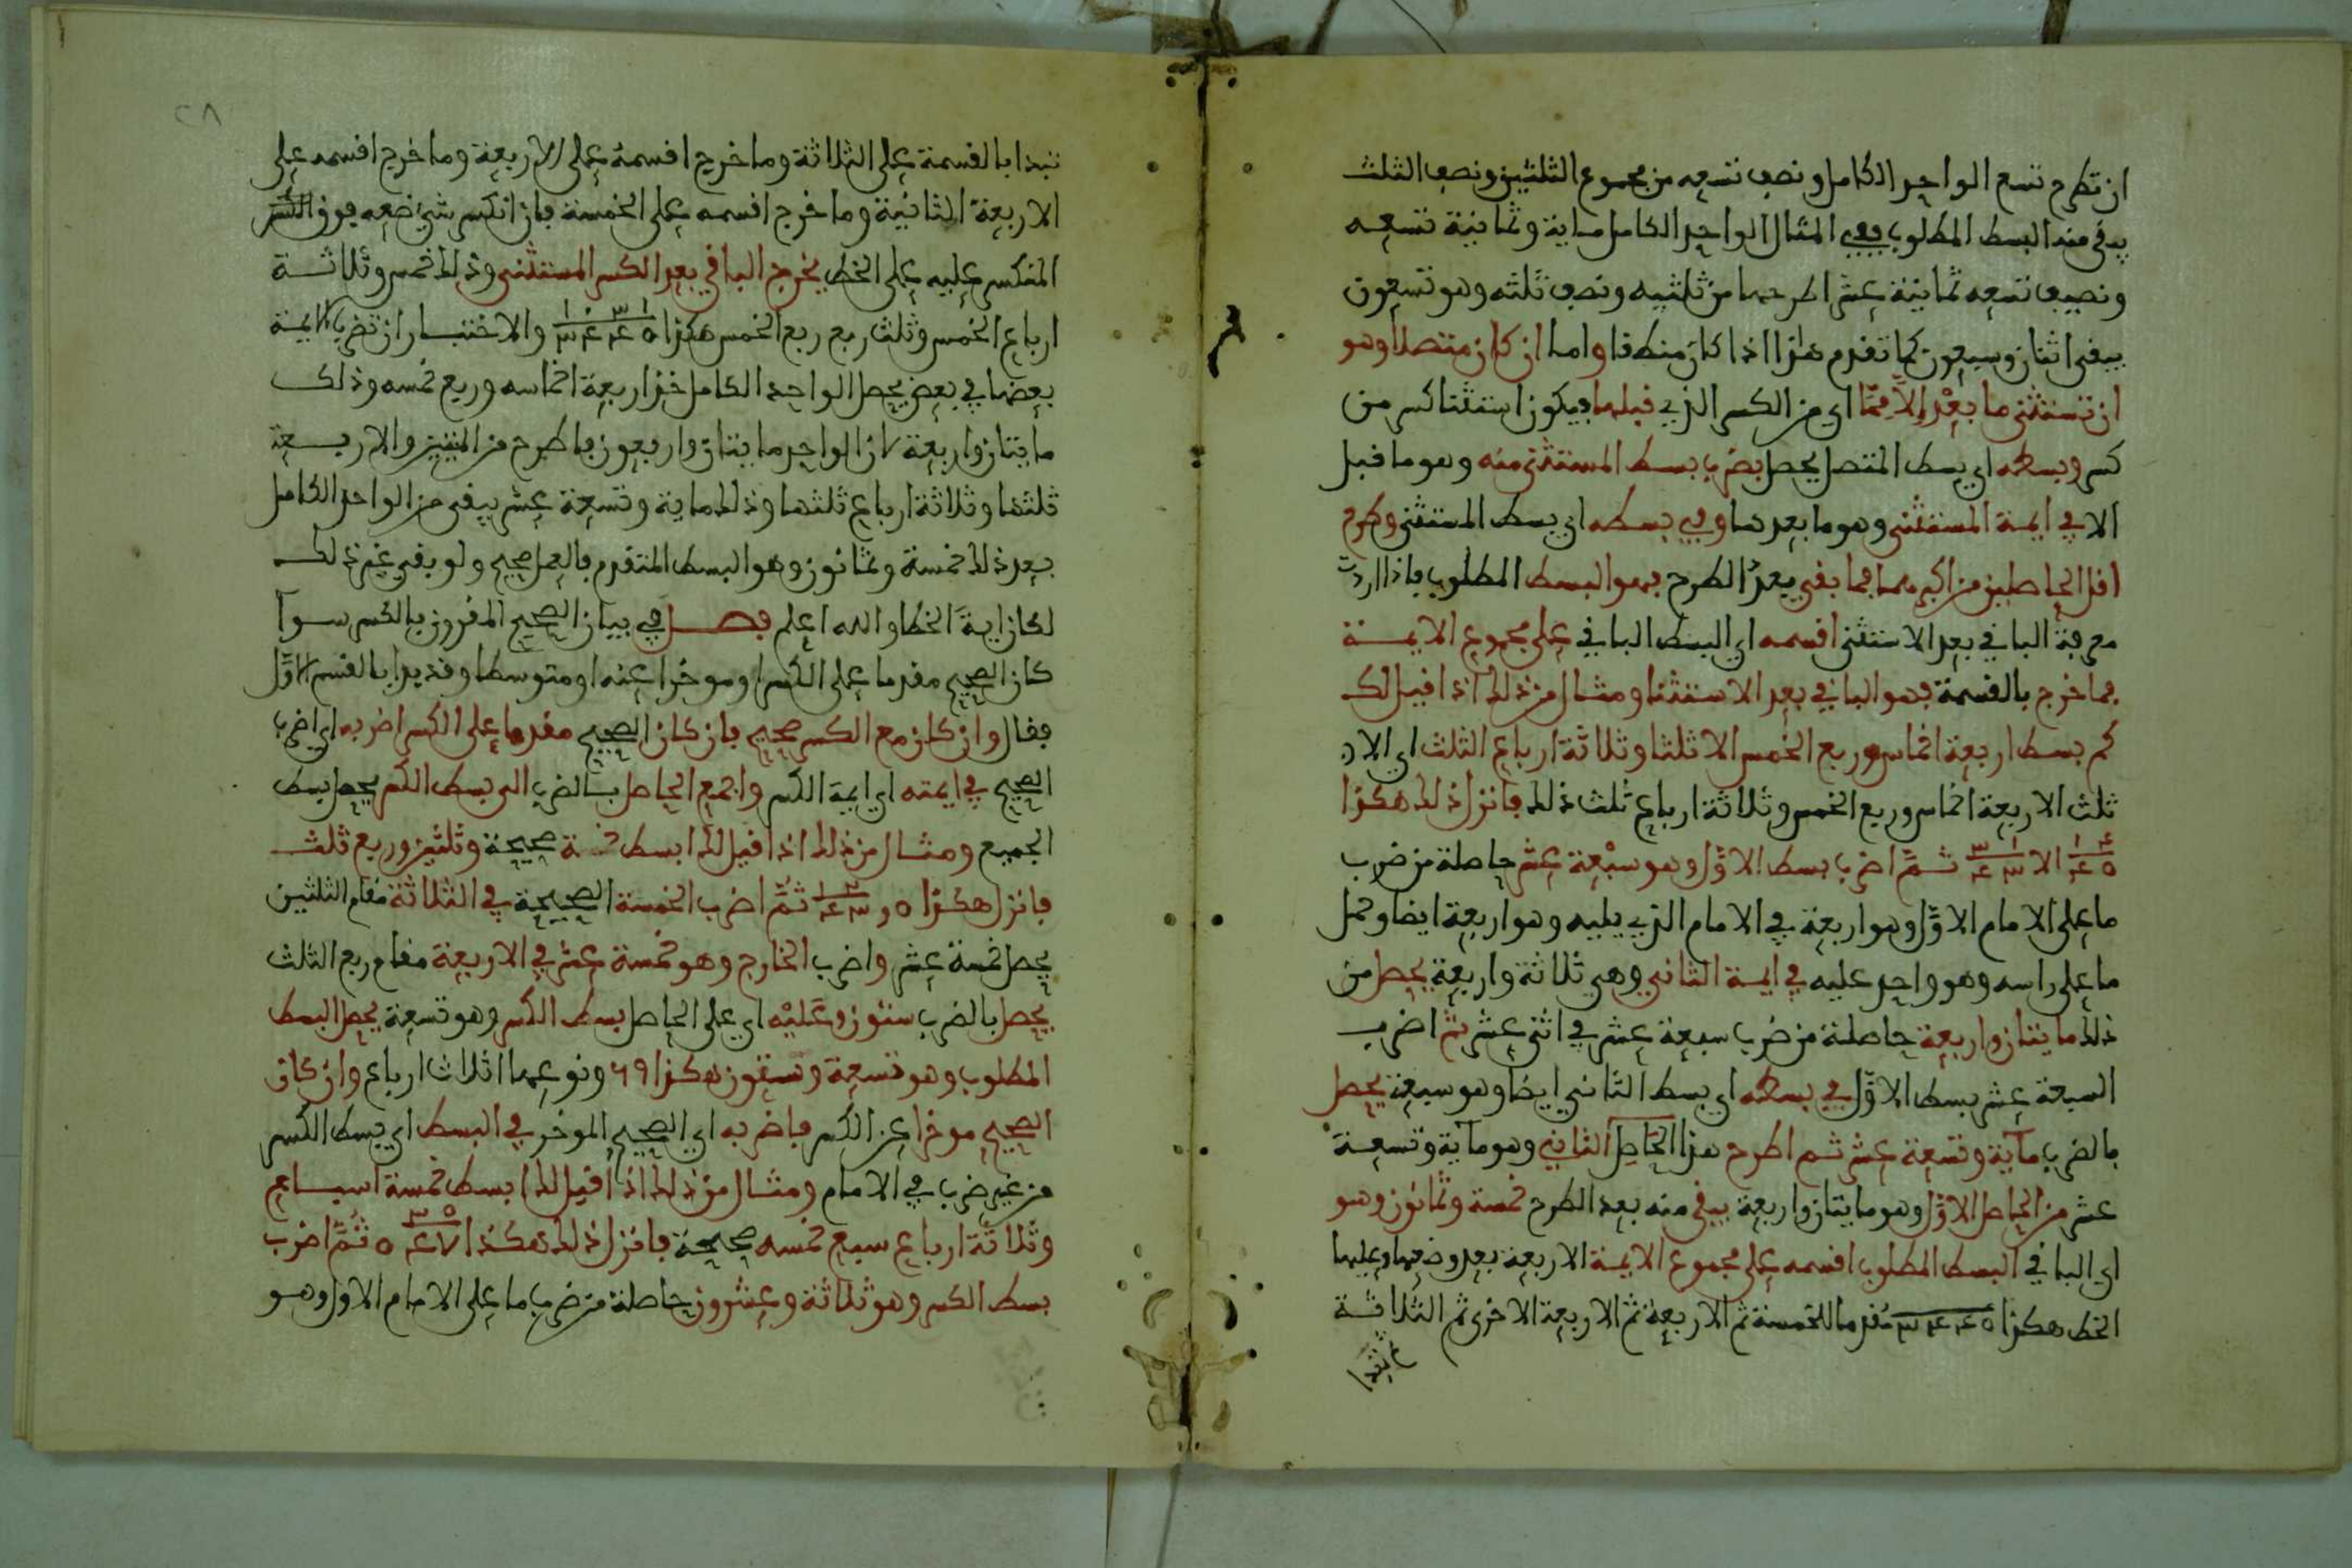 ان تطرح تسع الواحد الكامل ونصف تسعه من مجموع الثلثين ونصف الثلث
يبقى منه البسط المطلوب ففي المثال الواحد الكامل ماية وثمانية تسعه
ونصف تسعه ثمانية عشر اطرحها من ثلثيه ونصف ثلثه وهو تسعون
يبقى اثنان وسبعون كما تقدم هذا اذا كان منقطعا واما ان كان متصلا وهو
ان تستثنى ما بعد الا مما اي من الكسر الذي قبلها فيكون استثنا كسر من
كسر وبسطه اي بسط المتصل يحصل بضرب بسط المستثنى منه وهو ما قبل
الا في ايمة المستثنى وهو ما بعدها وفي بسطه اي بسط المستثنى وطرح
اقل الحاصلين من اكبرهما فما بقي بعد الطرح فهو البسط المطلوب فاذا اردت
معرفة الباقي بعد الاستثنى اقسمه اي البسط الباقي على مجموع الايمة
فما خرج بالقسمة فهو الباقي بعد الاستثنا ومثال من ذلك اذا قيل لك
كم بسط اربعة اخماس وربع الخمس الا ثلثا وثلاثة ارباع الثلث اي الا
ثلث الاربعة اخماس وربع الخمس وثلاثة ارباع ثلث ذلك فانزل ذلك هكذا
٤ ١ / ٥ ٤ الا ١ ٣ / ٣ ٤ ثم اضرب بسط الاول وهو سبعة عشر حاصلة من ضرب
ما على الامام الاول وهو اربعة في الامام الذي يليه وهو اربعة ايضا وحمل
ما على راسه وهو واحد عليه في ايمة الثاني وهي ثلاثة واربعة يحصل من
ذلك مايتان واربعة حاصلة من ضرب سبعة عشر في اثنى عشر ثم اضرب
السبعة عشر بسط الاول في بسطه اي بسط الثاني ايضا وهو سبعة يحصل
بالضرب ماية وتسعة عشر ثم اطرح هذا الحاصل الثاني وهو ماية وتسعة
عشر من الحاصل الاول وهو مايتان واربعة يبقى منه بعد الطرح خمسة وثمانون وهو
اي الباقي البسط المطلوب اقسمه على مجموع الايمة الاربعة بعد وضعها وعليها
الخط هكذا ٥ ٤ ٤ ٣ مقدما للخمسة ثم الاربعة ثم الاربعة الاخرى ثم الثلاثة
تبدا
٢٨
تبدا بالقسمة على الثلاثة وما خرج اقسمه على الاربعة وما خرج اقسمه على
الاربعة الثانية وما خرج اقسمه على الخمسة فان انكسر شيئ ضعه فوق الكسر
المنكسر عليه على الخط يخرج الباقي بعد الكسر المستثنى وذلك خمس وثلاثة
ارباع الخمس وثلث ربع ربع الخمس هكذا ١ ٣ ٠ ١ / ٥ ٤ ٤ ٣ والاختبار ان تضرب الايمة
بعضها في بعض يحصل الواحد الكامل خذ اربعة اخماسه وربع خمسه وذلك
مايتان واربعة لان الواحد مايتان واربعون فاطرح من المئتين والاربعة
ثلثها وثلاثة ارباع ثلثها وذلك ماية وتسعة عشر يبقى من الواحد الكامل
بعد ذلك خمسة وثمانون وهو البسط المتقدم فالعمل صحيح ولو بقي غير ذلك
لكان اية الخطا والله اعلم فصل في بيان الصحيح المقرون بالكسر سوآ
كان الصحيح مقدما على الكسر او موخرا عنه او متوسطا وقد بدا بالقسم الاول
فقال وان كان مع الكسر صحيح فان كان الصحيح مقدما على الكسر اضربه اي اضرب
الصحيح في ايمته اي ايمة الكسر واجمع الحاصل بالضرب الى بسط الكسر يحصل بسط
الجميع ومثال من ذلك اذا قيل لك ابسط خمسة صحيحة وثلثين وربع ثلث
فانزل هكذا ٥ و ٢ ١ / ٣ ٤ ثم اضرب الخمسة الصحيحة في الثلاثة مقام الثلثين
يحصل خمسة عشر واضرب الخارج وهو خمسة عشر في الاربعة مقام ربع الثلث
يحصل بالضرب ستون وعليه اي على الحاصل بسط الكسر وهو تسعة يحصل البسط
المطلوب وهو تسعة وستون هكذا ٦٩ ونوعها اثلاث ارباع وان كان
الصحيح موخرا عن الكسر فاضربه اي الصحيح الموخر في البسط اي بسط الكسر
من غير ضرب في الامام ومثال من ذلك اذا قيل لك ابسط خمسة اسباع
وثلاثة ارباع سبع خمسه صحيحة فانزل ذلك هكذا ٥ ٣ / ٧ ٤ ٥ ثم اضرب
بسط الكسر وهو ثلاثة وعشرون حاصلة من ضرب ما على الامام الاول وهو